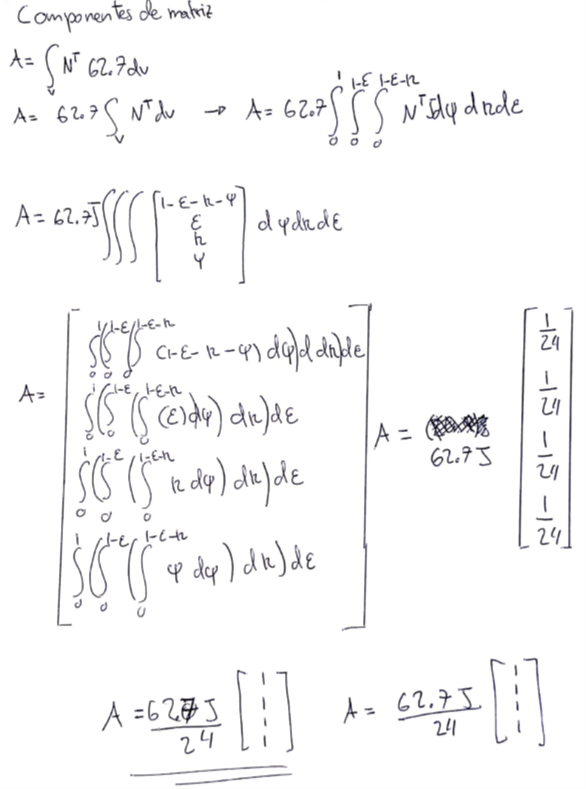 Componentes de matriz
A = ∫_V N^T 62.7 dv
A = 62.7 ∫_V N^T dv → A = 62.7 ∫_0^1 ∫_0^{1-ε} ∫_0^{1-ε-n} N^T J dφ dn dε
A = 62.7 J ∫∫∫ [1-ε-n-φ; ε; n; φ] dφ dn dε
A = [
∫_0^1 (∫_0^{1-ε} (∫_0^{1-ε-n} (1-ε-n-φ) dφ) d dn) dε
∫_0^1 (∫_0^{1-ε} (∫_0^{1-ε-n} (ε) dφ) dn) dε
∫_0^1 (∫_0^{1-ε} (∫_0^{1-ε-n} n dφ) dn) dε
∫_0^1 (∫_0^{1-ε} (∫_0^{1-ε-n} φ dφ) dn) dε
]
A = 62.7 J [1/24; 1/24; 1/24; 1/24]
A = 62.7 J / 24 [1; 1; 1; 1]
A = 62.7 J / 24 [1; 1; 1; 1]